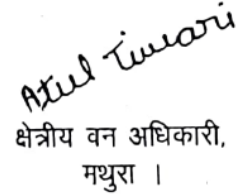 Atul Tiwari
क्षेत्रीय वन अधिकारी,
मथुरा ।